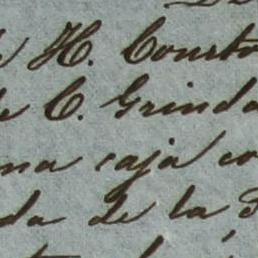 H. Courto
e C. Grinda
na caja co
da de la